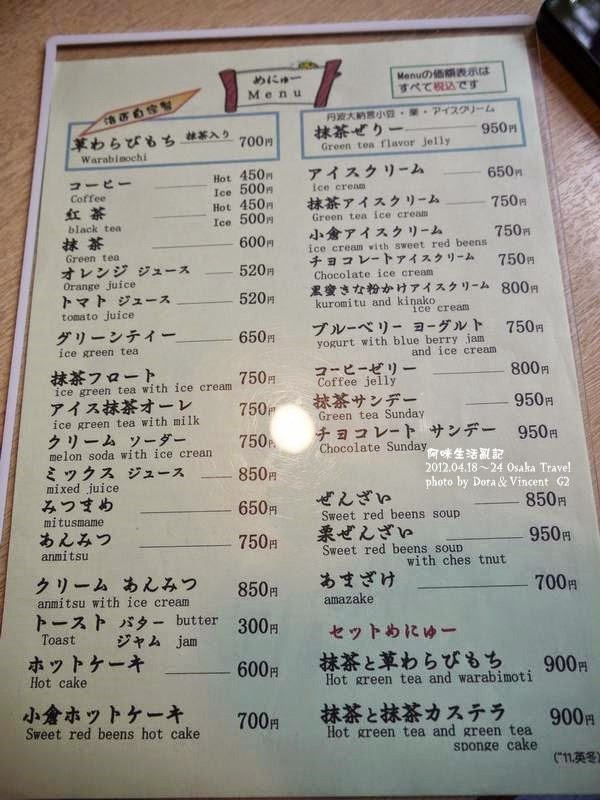 めにゅー
Menu
Menuの価額表示は
すべて税込です
当店自家製
草わらびもち 抹茶入り 700円
Warabimochi
コーヒー Hot 450円
Coffee Ice 500円
紅茶 Hot 450円
black tea Ice 500円
抹茶 600円
Green tea
オレンジ ジュース 520円
Orange juice
トマト ジュース 520円
tomato juice
グリーンティー 650円
ice green tea
抹茶フロート 750円
ice green tea with ice cream
アイス抹茶オーレ 750円
ice green tea with milk
クリーム ソーダー 750円
melon soda with ice crean
ミックス ジュース 850円
mixed juice
みつまめ 650円
mitusmame
あんみつ 750円
anmitsu
クリーム あんみつ 850円
anmitsu with ice cream
トースト バター butter 300円
Toast ジャム jam
ホットケーキ 600円
Hot cake
小倉ホットケーキ 700円
Sweet red beens hot cake
丹波大納言小豆・栗・アイスクリーム
抹茶ゼリー 950円
Green tea flavor jelly
アイスクリーム 650円
ice cream
抹茶アイスクリーム 750円
Green tea ice cream
小倉アイスクリーム 750円
ice cream with sweet red beens
チョコレートアイスクリーム 750円
Chocolate ice cream
黒蜜きな粉かけアイスクリーム 800円
kuromitu and kinako
ice cream
ブルーベリー ヨーグルト 750円
yogurt with blue berry jam
and ice cream
コーヒーゼリー 800円
Coffee jelly
抹茶サンデー 950円
Green tea Sunday
チョコレート サンデー 950円
Chocolate Sunday
阿咪生活副記
2012.04.18～24 Osaka Travel
photo by Dora & Vincent G2
ぜんざい 850円
Sweet red beens soup
栗ぜんざい 950円
Sweet red beens soup
with ches tnut
あまざけ 700円
amazake
セットめにゅー
抹茶と草わらびもち 900円
Hot green tea and warabimoti
抹茶と抹茶カステラ 900円
Hot green tea and green tea
sponge cake
("11.英冬)